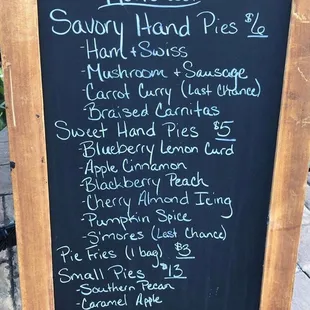 Savory Hand Pies $6
-Ham + Swiss
-Mushroom + Sausage
-Carrot Curry (Last Chance)
-Braised Carnitas
Sweet Hand Pies $5
-Blueberry Lemon Curd
-Apple Cinnamon
-Blackberry Peach
-Cherry Almond Icing
-Pumpkin Spice
-S'mores (Last Chance)
Pie Fries (1 bag) $3
Small Pies $13
-Southern Pecan
-Caramel Apple